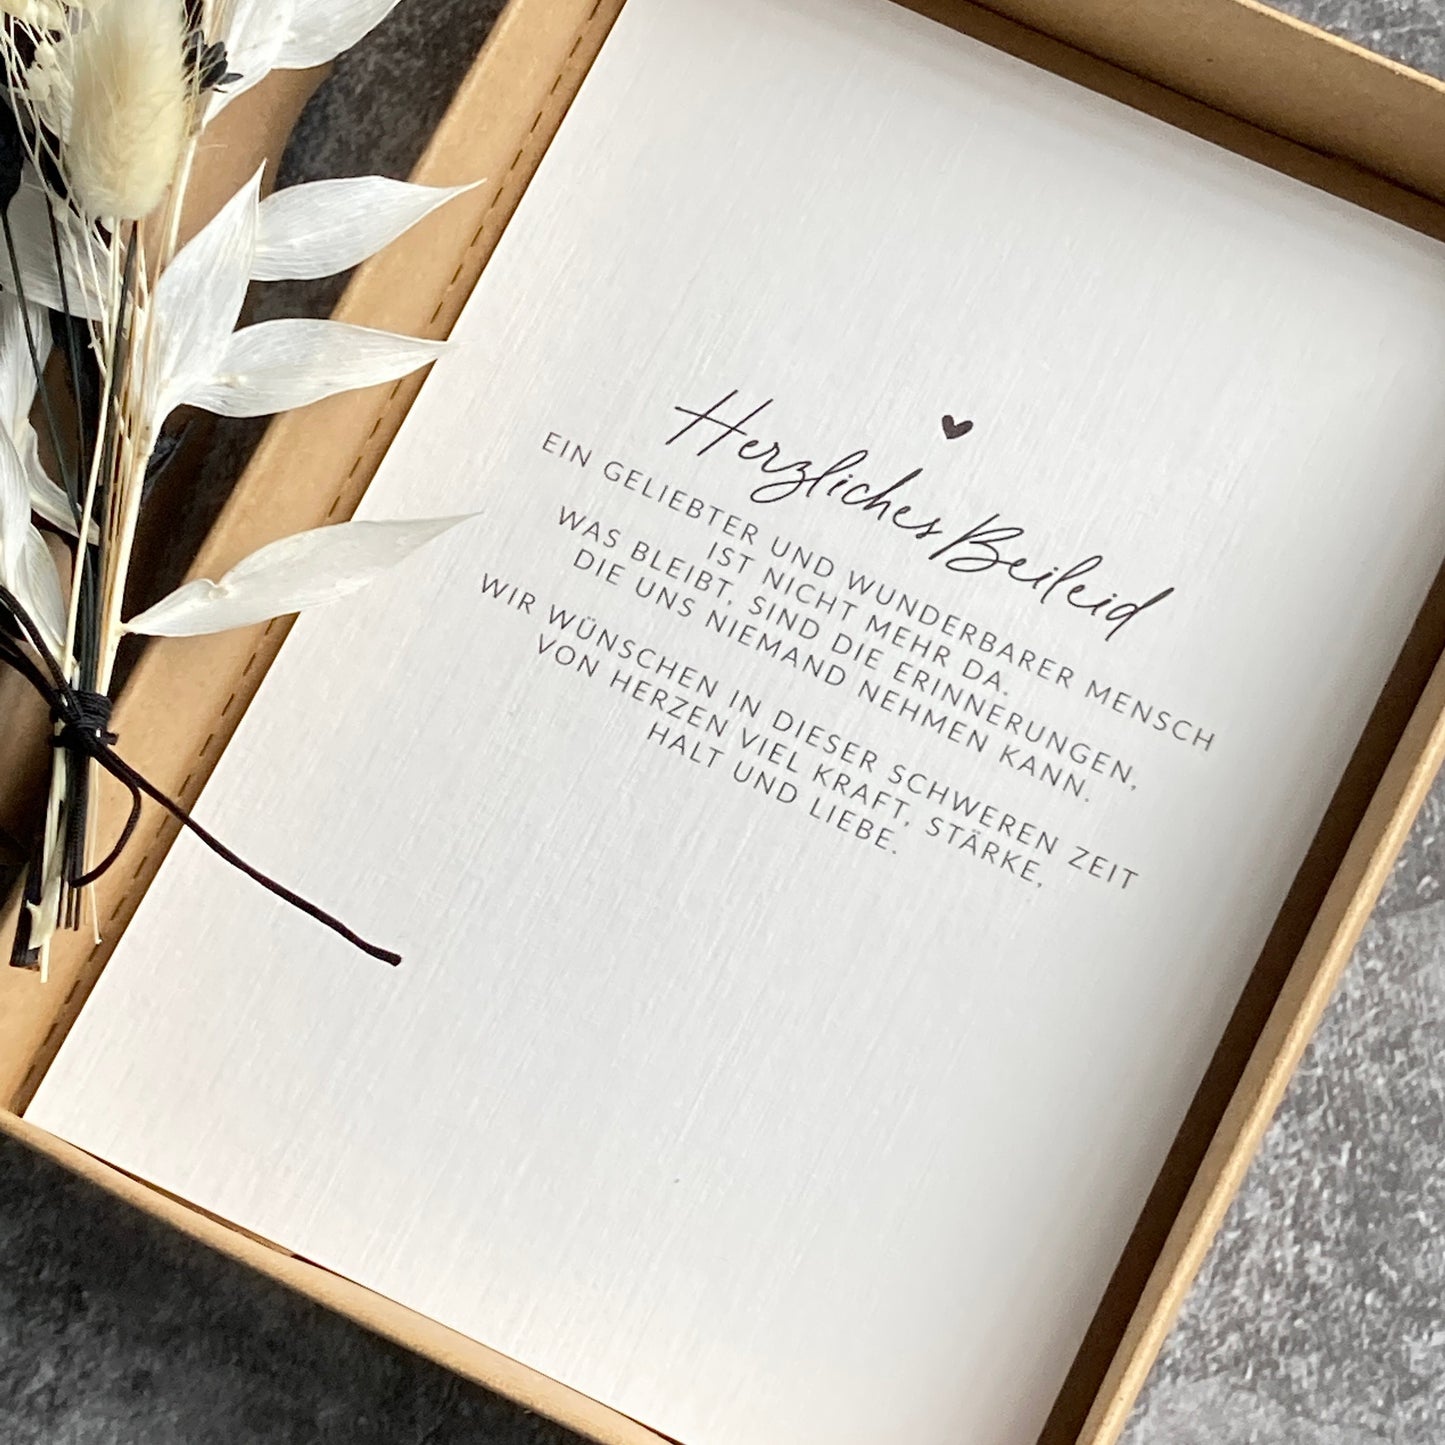 Herzliches Beileid
EIN GELIEBTER UND WUNDERBARER MENSCH
IST NICHT MEHR DA.
WAS BLEIBT, SIND DIE ERINNERUNGEN,
DIE UNS NIEMAND NEHMEN KANN.
WIR WÜNSCHEN IN DIESER SCHWEREN ZEIT
VON HERZEN VIEL KRAFT, STÄRKE,
HALT UND LIEBE.